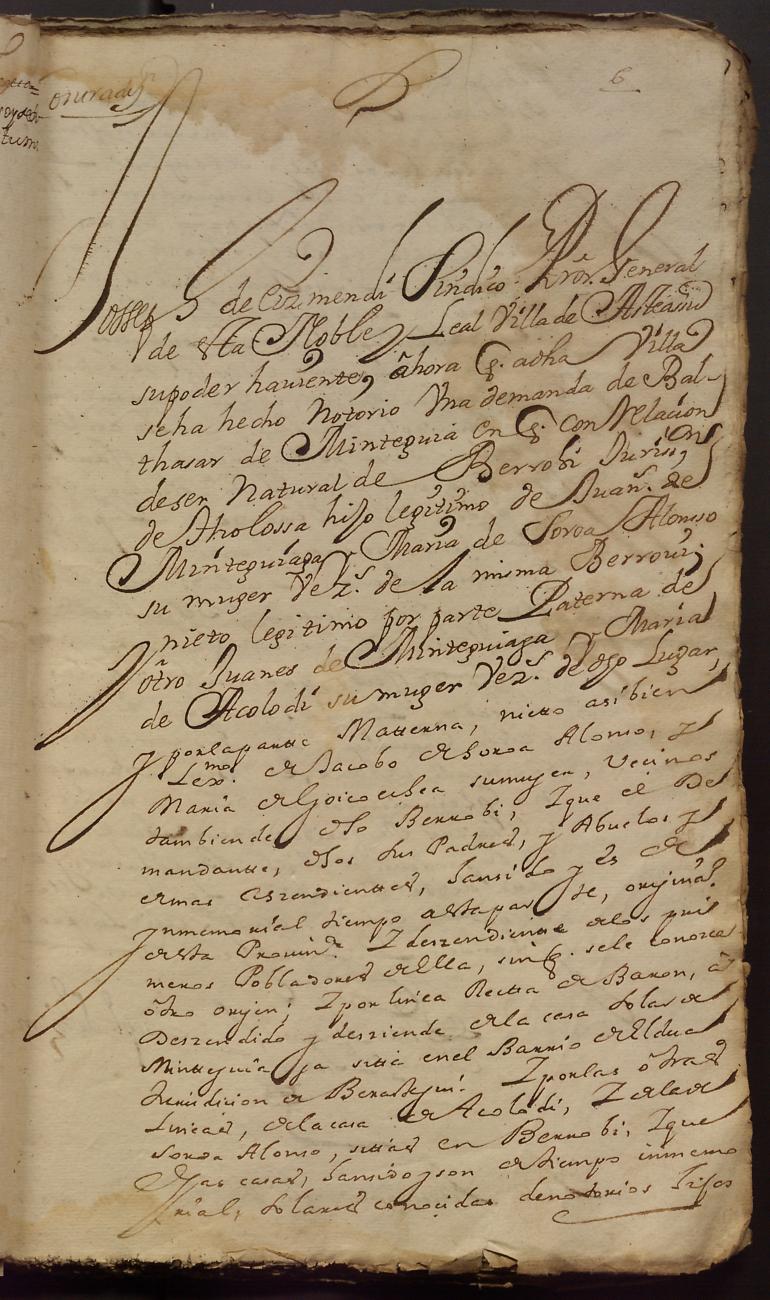 onrrads
6
Josseph de Eizmendi Sindico Prór General
de esta Noble y Leal Villa de Asteasu
su poder hauiente, ahora q. a dha Villa
se ha hecho Notorio Vna demanda de Bal-
thasar de Minteguia en q. con Relacion
de ser Natural de Berrobi Jurisn
de Tholossa hijo legitimo de Juans. de
Minteguiaga y Maria de Soroa Alonso
su muger Vezs. de la misma Berroui;
nieto legitimo por parte Paterna de
otro Juanes de Minteguiaga y Maria
de Acolodi su muger Vezs. de dho Lugar,
y por la partte Matterna, nieto asi bien
Lexmo. de Jacobo de Soroa Alonso, y
Maria de Goicoechea su mujer, vecinos
tambien de dho Berrobi, Y que el De
mandantte, dhos sus Padres, y Abuelos y
demas aszendienttes, han sido y es de
ynmemorial tiempo a esta parte, orijinas.
de esta Provina. Y deszendiente de los pri
meros Pobladores de Ella, sin q. se le conozca
otro orijen; Y por linea Rectta de Baron, a
Deszendido y desziende de la casa solar de
Minteguia ya sitta en el Barrio de Eldua
Jurisdicion de Berastegui. Y por las otras
Lineas, de la casa de Acolodi, Y de la de
Soroa Alonso, sittas en Berrobi, Y que
dhas casas, han sido y son de tiempo inmemo
rial, solares conocidas de notorios Hijos